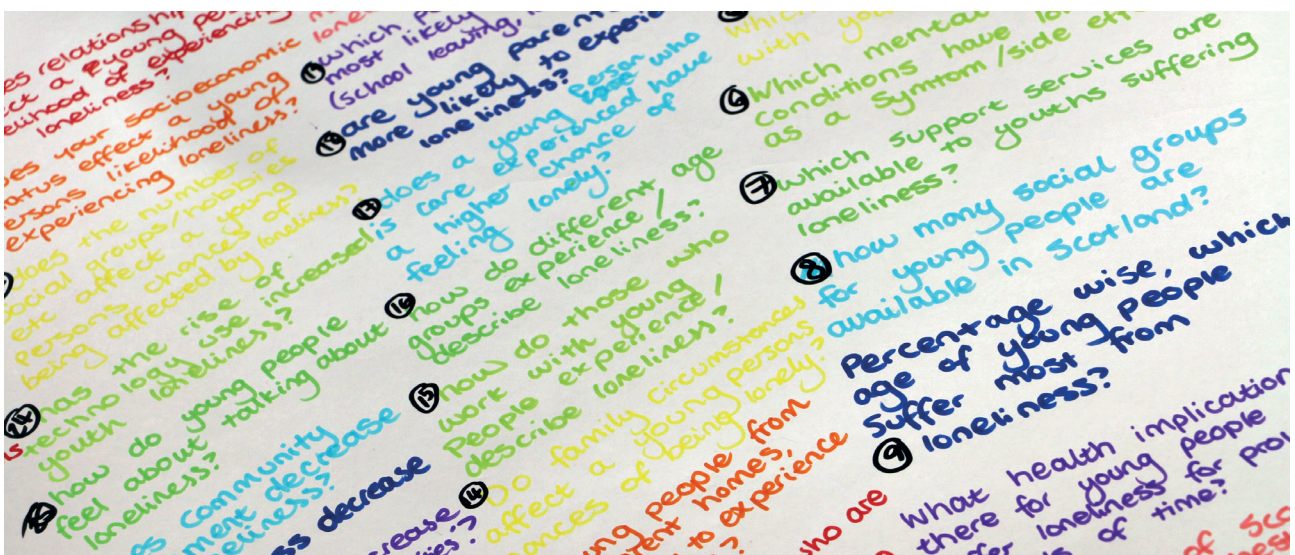 relationship
young
likelihood of experiencing
loneliness?
your socioeconomic
status effect a young
persons likelihood of
experiencing loneliness?
does the number of
social groups/hobbies
etc affect a young
persons chances of
being affected by loneliness?
24 has the rise of
technology use increased
youth loneliness?
how do young people
feel about talking about
loneliness?
community
decrease
decrease
11 which
most likely
(school leaving,
12 are young
more likely to
loneliness?
13 does a young person who
is care experienced have
a higher chance of
feeling lonely?
16 how do different age
groups experience/
describe loneliness?
15 how do those who
work with young
people experience/
describe loneliness?
14 Do family circumstances
affect a young persons
of being lonely?
people from
homes,
to experience
who are
which
with
6 Which mental
conditions have
as a symtom/side
7 which support services are
available to youths suffering
loneliness?
8 how many social groups
for young people are
available in Scotland?
9 Percentage wise, which
age of young people
suffer most from
loneliness?
what health
there for young people
loneliness for
of time?
of